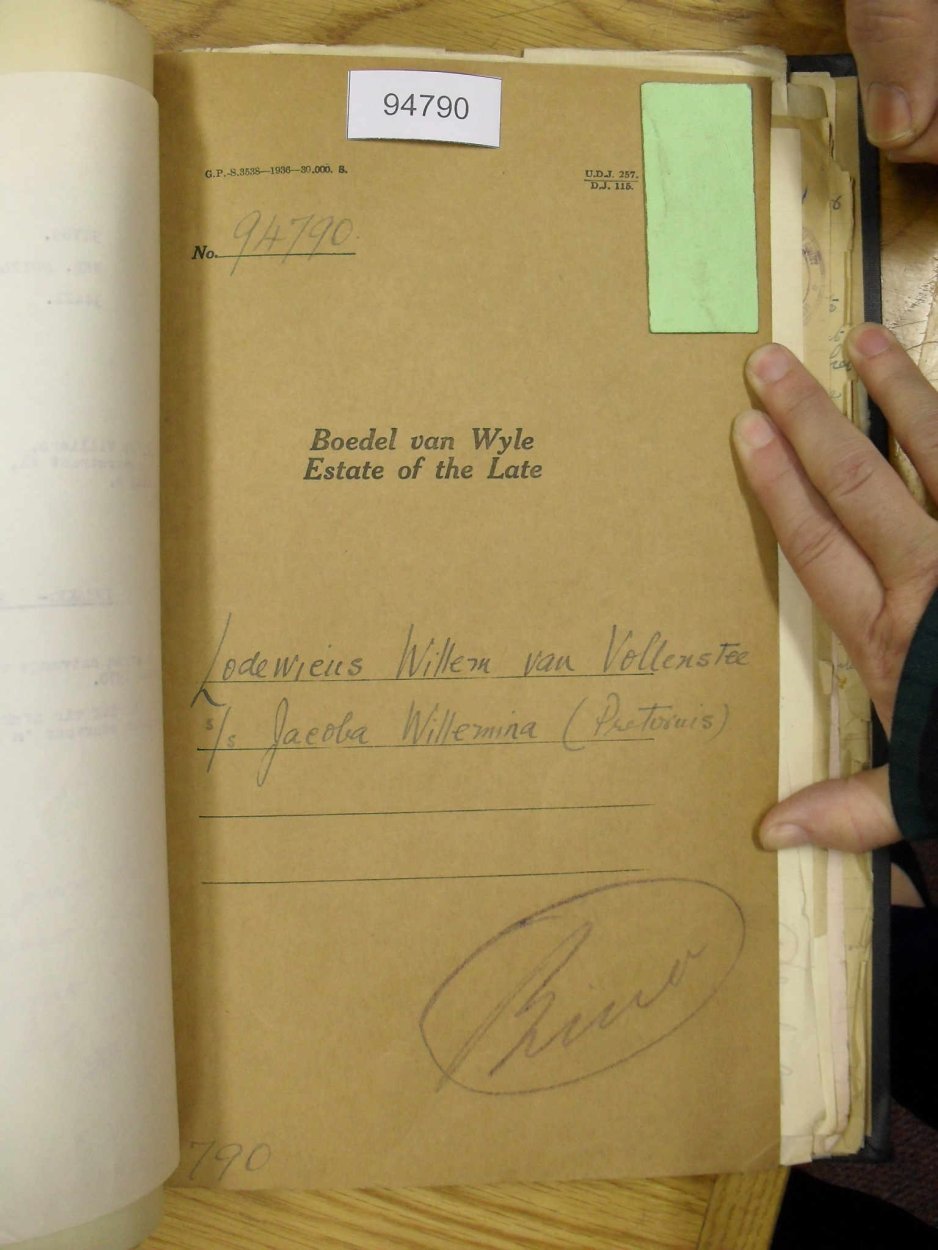 94790
G.P.-S.3538—1936—30.000. S.
U.D.J. 257.
D.J. 115.
No. 94790
Boedel van Wyle
Estate of the Late
Lodewicus Willem van Vollenstee
s/s Jacoba Willemina (Pretorius)
790